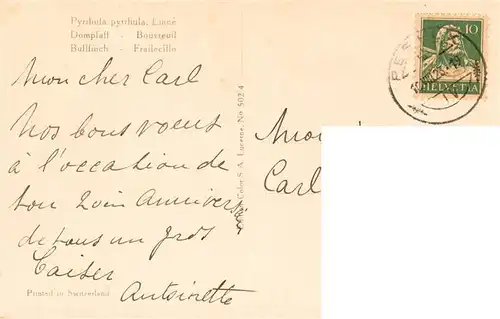 Pyrrhula pyrrhula, Linné
Dompfaff - Bouvreuil
Bullfinch - Frailecillo
Mon cher Carl
Nos bons voeux
à l'occation de
ton 20in Anniver
de tous un gros
Caiser
Antoinette
Printed in Switzerland
Color S. A. Lucerne, No 502 4
Carl
10
HELVETIA